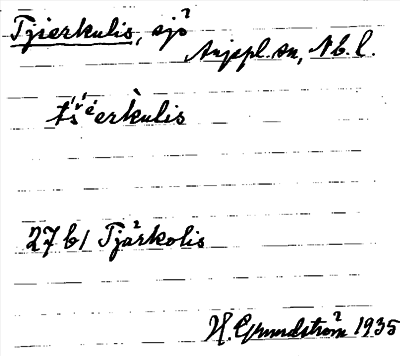 Tjierkulis, sjö
Arjepl. sn, Nb. l.
tšierkùlis
27 b1 Tjärkolis
H. Grundström 1935